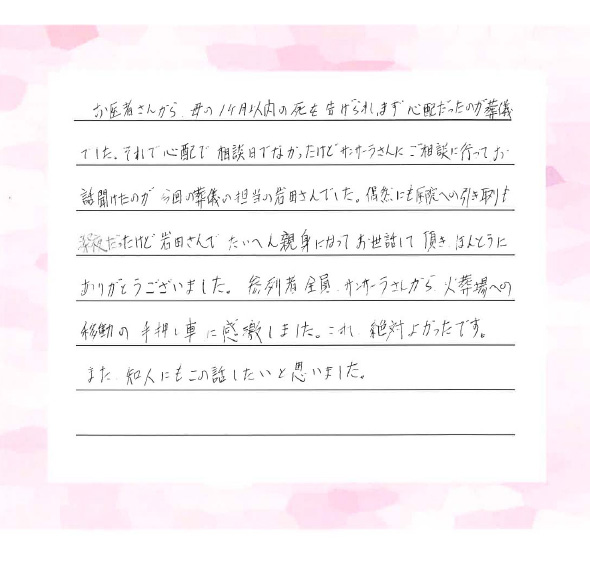 お医者さんから、母の1ヶ月以内の死を告げられ、まず心配だったのが葬儀
でした。それで心配で相談日でなかったけどサンサーラさんにご相談に行ってお
話聞けたのが今回の葬儀の担当の岩田さんでした。偶然にも病院への引き取りも
深夜だったけど岩田さんでたいへん親身になってお世話して頂き、ほんとうに
ありがとうございました。参列者全員、サンサーラさんから火葬場への
移動の手押し車に感激しました。これ、絶対よかったです。
また、知人にもこの話したいと思いました。